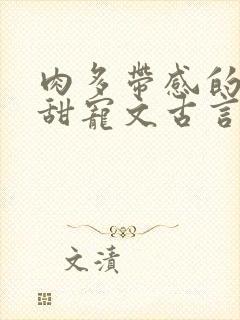 肉多带感的
甜寵文古言
文漬